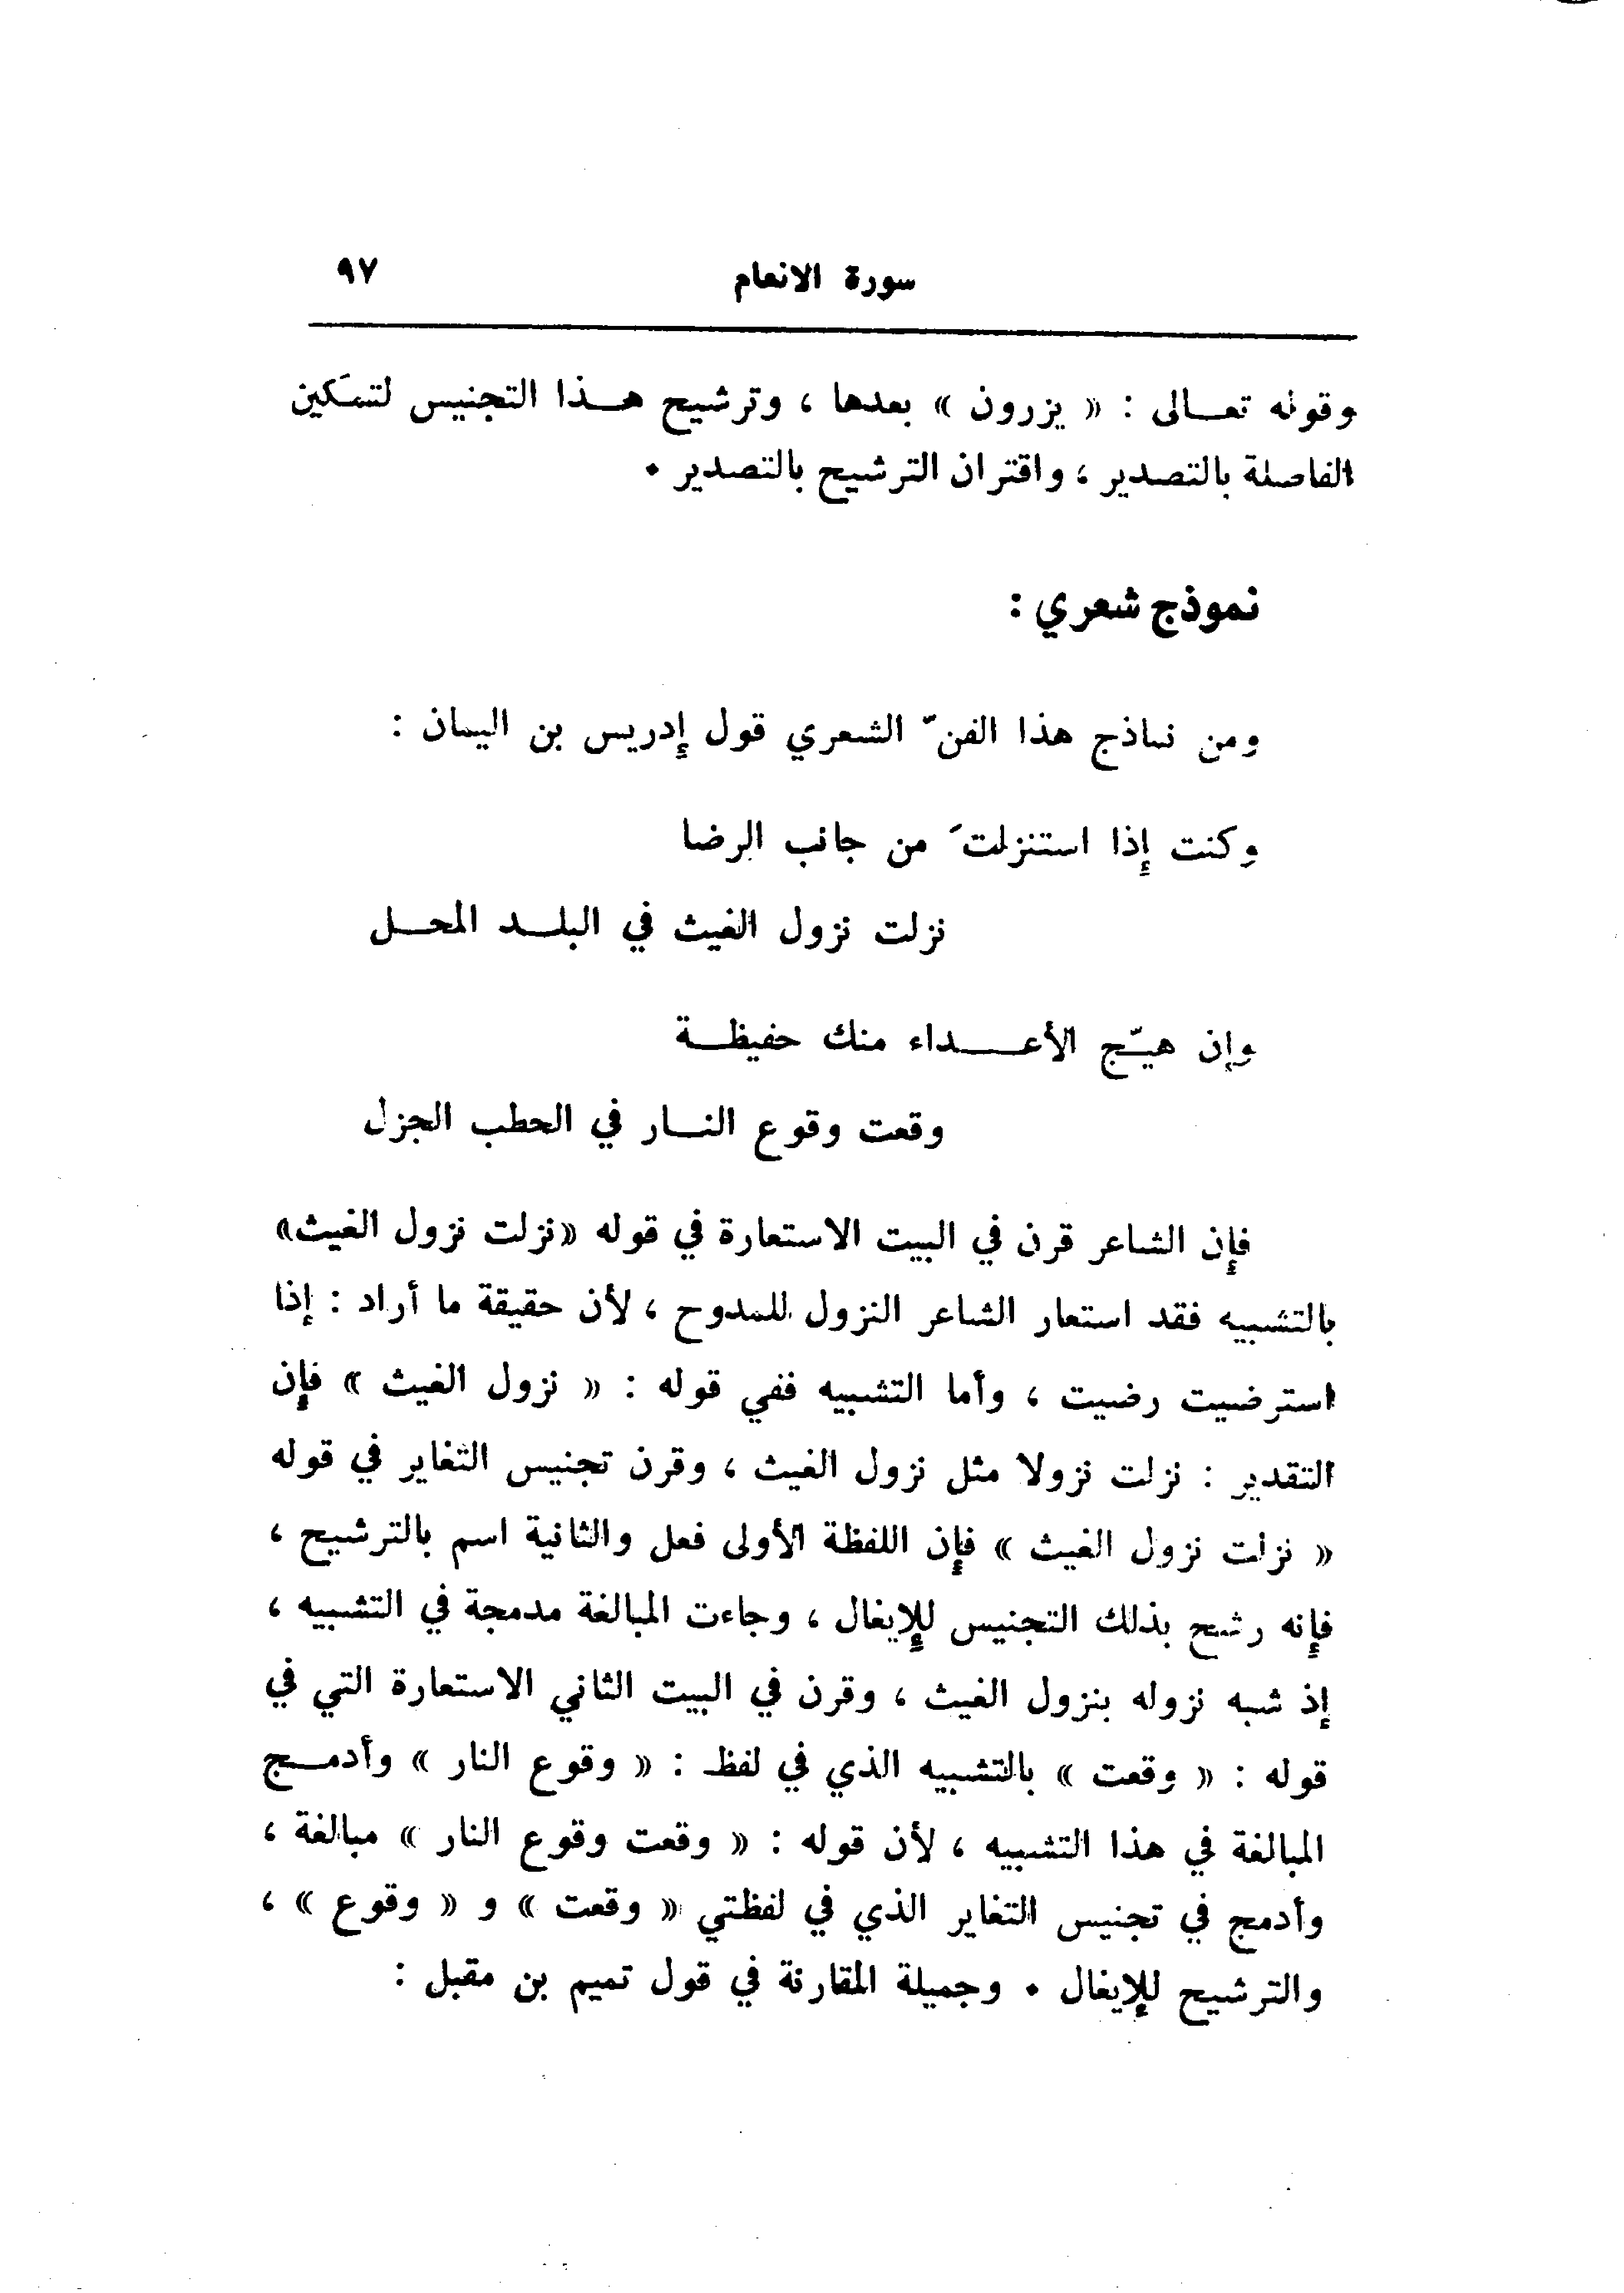 سورة الانعام ٩٧
وقوله تعالى : « يزرون » بعدها ، وترشيح هذا التجنيس لتمكين
الفاصلة بالتصدير ، واقتران الترشيح بالتصدير .
نموذج شعري :
ومن نماذج هذا الفنّ الشعري قول إدريس بن اليمان :
وكنت إذا استنزلتَ من جانب الرضا
نزلت نزول الغيث في البلد المحل
وإن هيّج الأعداء منك حفيظة
وقعت وقوع النار في الحطب الجزل
فإن الشاعر قرن في البيت الاستعارة في قوله «نزلت نزول الغيث»
بالتشبيه فقد استعار الشاعر النزول للممدوح ، لأن حقيقة ما أراد : إذا
استرضيت رضيت ، وأما التشبيه ففي قوله : « نزول الغيث » فإن
التقدير : نزلت نزولا مثل نزول الغيث ، وقرن تجنيس التغاير في قوله
« نزلت نزول الغيث » فإن اللفظة الأولى فعل والثانية اسم بالترشيح ،
فإنه رشح بذلك التجنيس للإيغال ، وجاءت المبالغة مدمجة في التشبيه ،
إذ شبه نزوله بنزول الغيث ، وقرن في البيت الثاني الاستعارة التي في
قوله : « وقعت » بالتشبيه الذي في لفظ : « وقوع النار » وأدمج
المبالغة في هذا التشبيه ، لأن قوله : « وقعت وقوع النار » مبالغة ،
وأدمج في تجنيس التغاير الذي في لفظتي « وقعت » و « وقوع » ،
والترشيح للإيغال . وجميلة المقارنة في قول تميم بن مقبل :